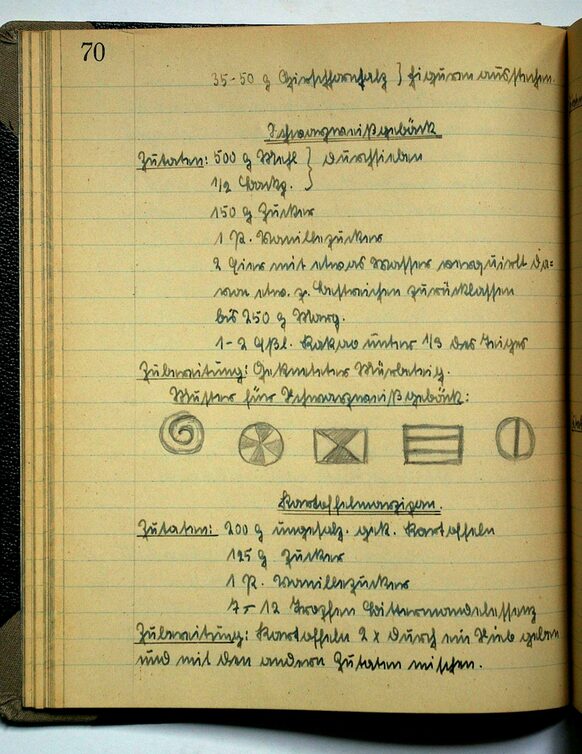 70
35-50 g Hirschhornsalz } Figuren ausstechen.
Schwarzweißgebäck
Zutaten: 500 g Mehl } durchsieben
1/2 Backp. }
150 g Zucker
1 P. Vanillezucker
2 Eier mit etwas Wasser verquirlt da=
von etw. z. Bestreichen zurücklassen
bis 250 g Marg.
1-2 Eßl. Kakao unter 1/3 des Teiges
Zubereitung: Gekneteter Mürbeteig.
Muster für Schwarzweißgebäck:
Kartoffelmarzipan.
Zutaten: 200 g ungesalz. gek. Kartoffeln
125 g Zucker
1 P. Vanillezucker
7-12 Tropfen Bittermandelessenz
Zubereitung: Kartoffeln 2x durch ein Sieb geben
und mit den andern Zutaten mischen.